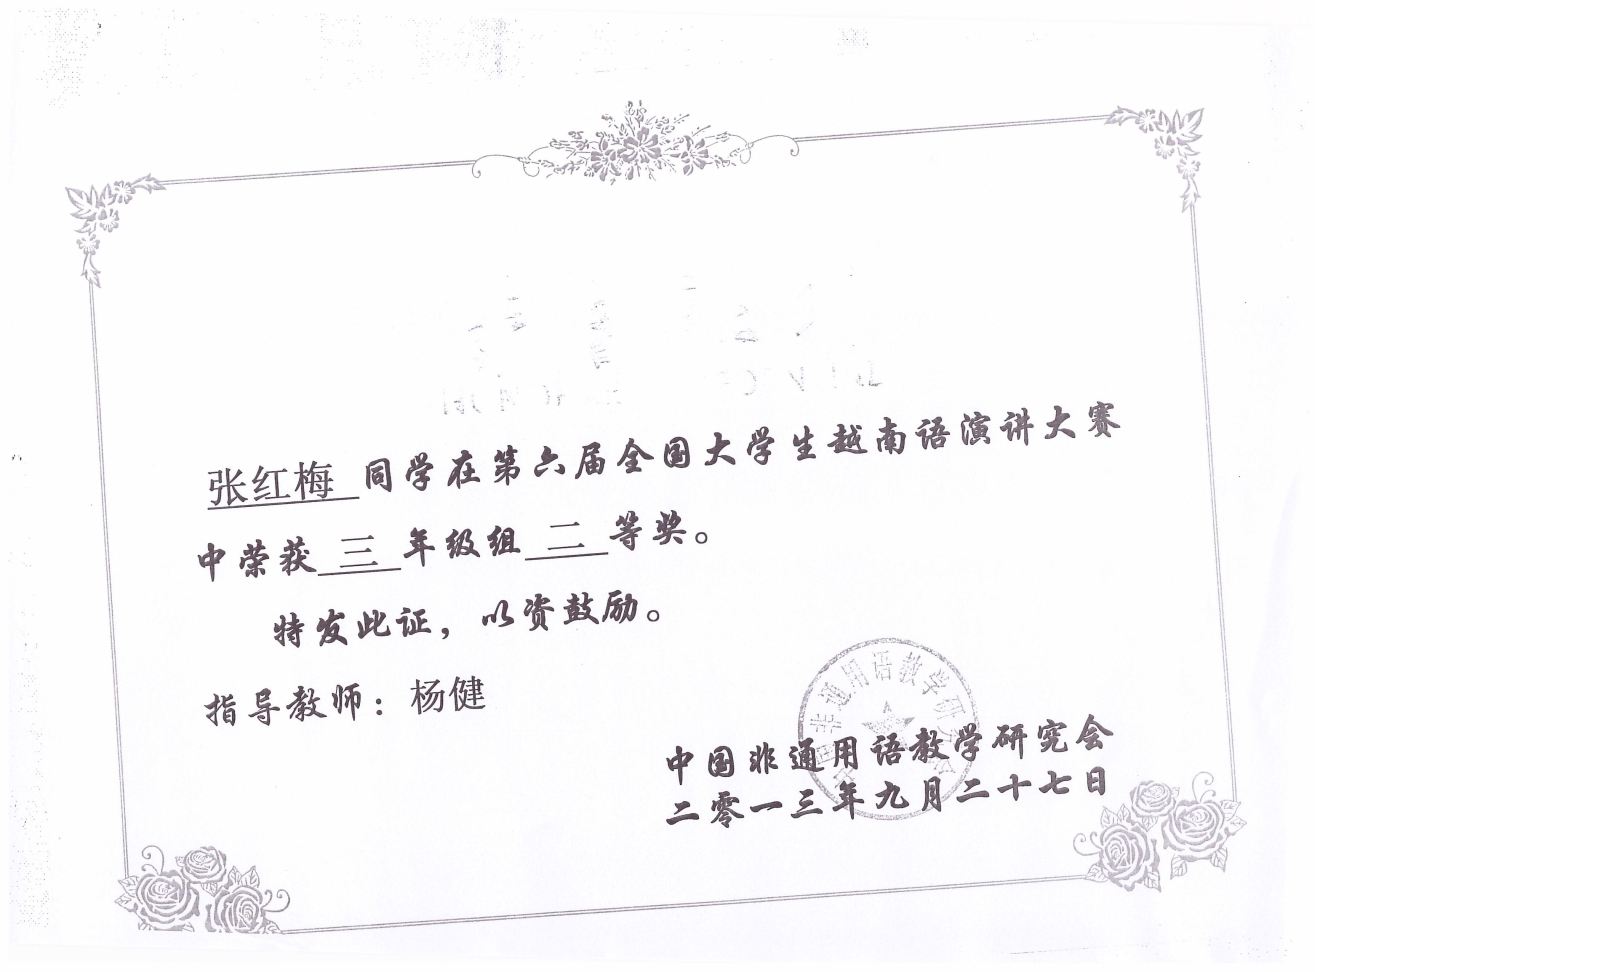 张红梅 同学在第六届全国大学生越南语演讲大赛
中荣获 三 年级组 二 等奖。
特发此证，以资鼓励。
指导教师：杨健
中国非通用语教学研究会
中国非通用语教学研究会
二零一三年九月二十七日